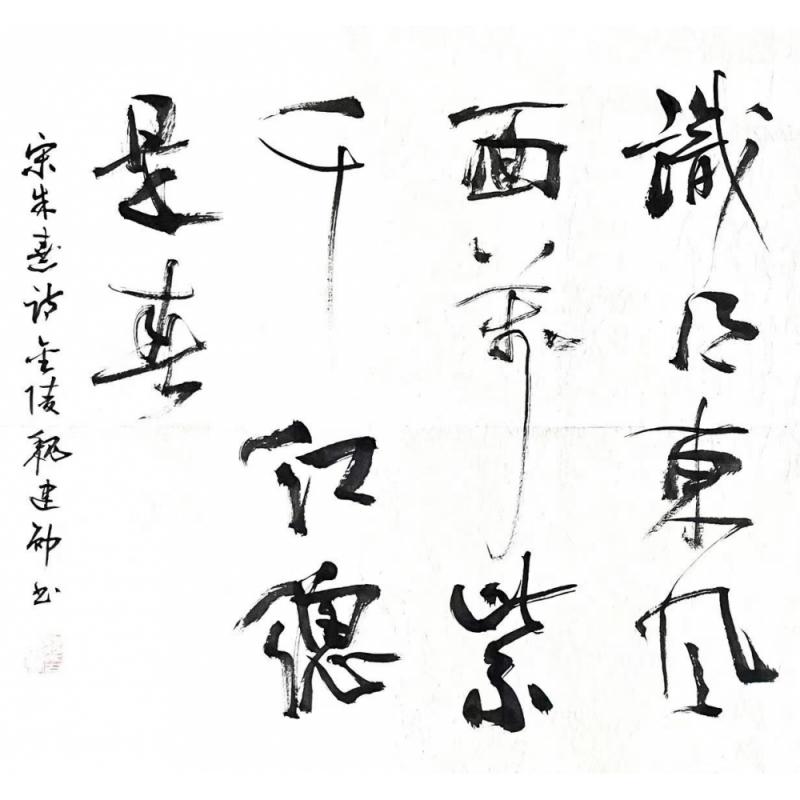 識得東風
面萬紫
千紅總
是春
宋朱熹诗金陵魏建书